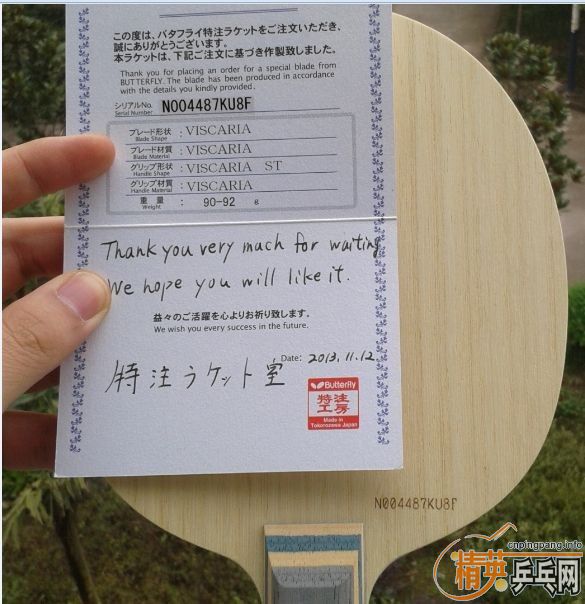 この度は、バタフライ特注ラケットをご注文いただき、
誠にありがとうございます。
本ラケットは、下記ご注文に基づき作製致しました。
Thank you for placing an order for a special blade from
BUTTERFLY. The blade has been produced in accordance
with the details you kindly provided.
シリアルNo. N004487KU8F
Serial Number
ブレード形状 : VISCARIA
Blade Shape
ブレード材質 : VISCARIA
Blade Material
グリップ形状 : VISCARIA ST
Handle Shape
グリップ材質 : VISCARIA
Handle Material
重量 : 90-92 g
Weight
Thank you very much for waiting
We hope you will like it.
益々のご活躍を心よりお祈り致します。
We wish you every success in the future.
Date: 2013.11.12
特注ラケット室
Butterfly
特注
工房
Made in
Tokorozawa Japan
N004487KU8F
cnpingpang.info
精英乒乓网